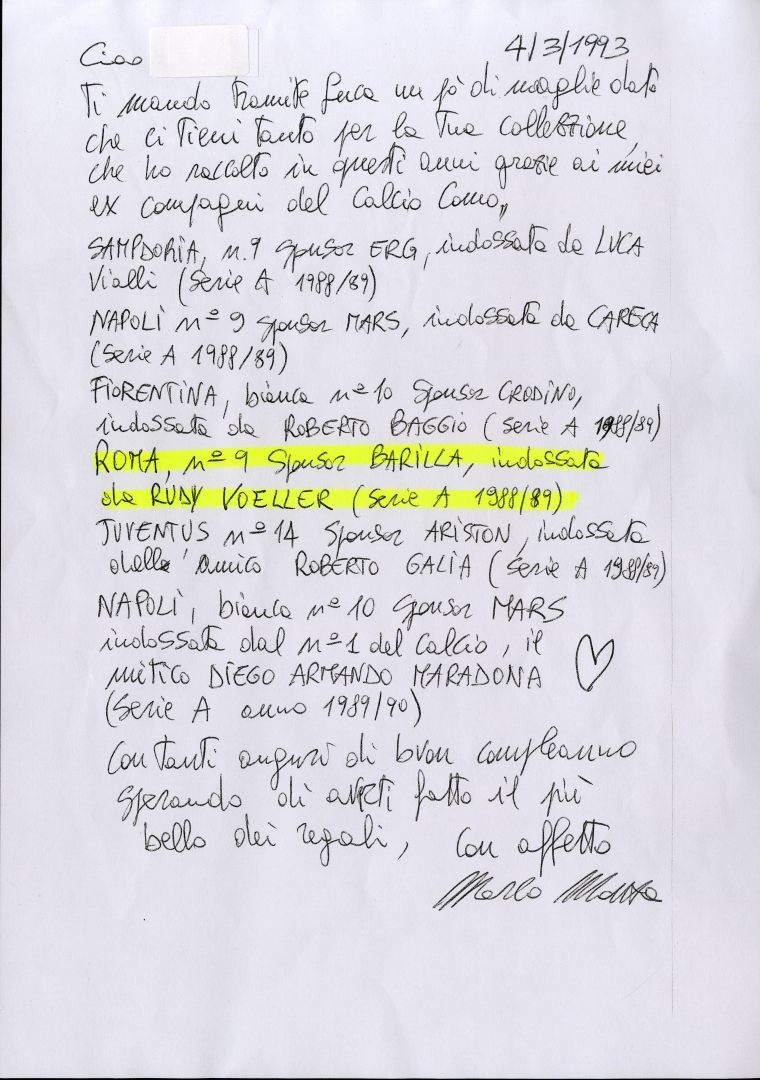 Ciao
4/3/1993
Ti mando tramite Luca un pò di maglie dato
che ci tieni tanto per la tua collezione,
che ho raccolto in questi anni grazie ai miei
ex compagni del Calcio Como,,
SAMPDORIA, n.9 sponsor ERG, indossata da LUCA
Vialli (Serie A 1988/89)
NAPOLI nº 9 sponsor MARS, indossata da CARECA
(Serie A 1988/89)
FIORENTINA, bianca nº 10 sponsor CRODINO,
indossata da ROBERTO BAGGIO (Serie A 1988/89)
ROMA, nº 9 sponsor BARILLA, indossata
da RUDY VOELLER (Serie A 1988/89)
JUVENTUS nº 14 sponsor ARISTON, indossata
dall' amico ROBERTO GALIA (Serie A 1988/89)
NAPOLI, bianca nº 10 sponsor MARS
indossata dal nº 1 del calcio, il
mitico DIEGO ARMANDO MARADONA
(Serie A anno 1989/90)
Con tanti auguri di buon compleanno
sperando di averti fatto il più
bello dei regali, con affetto